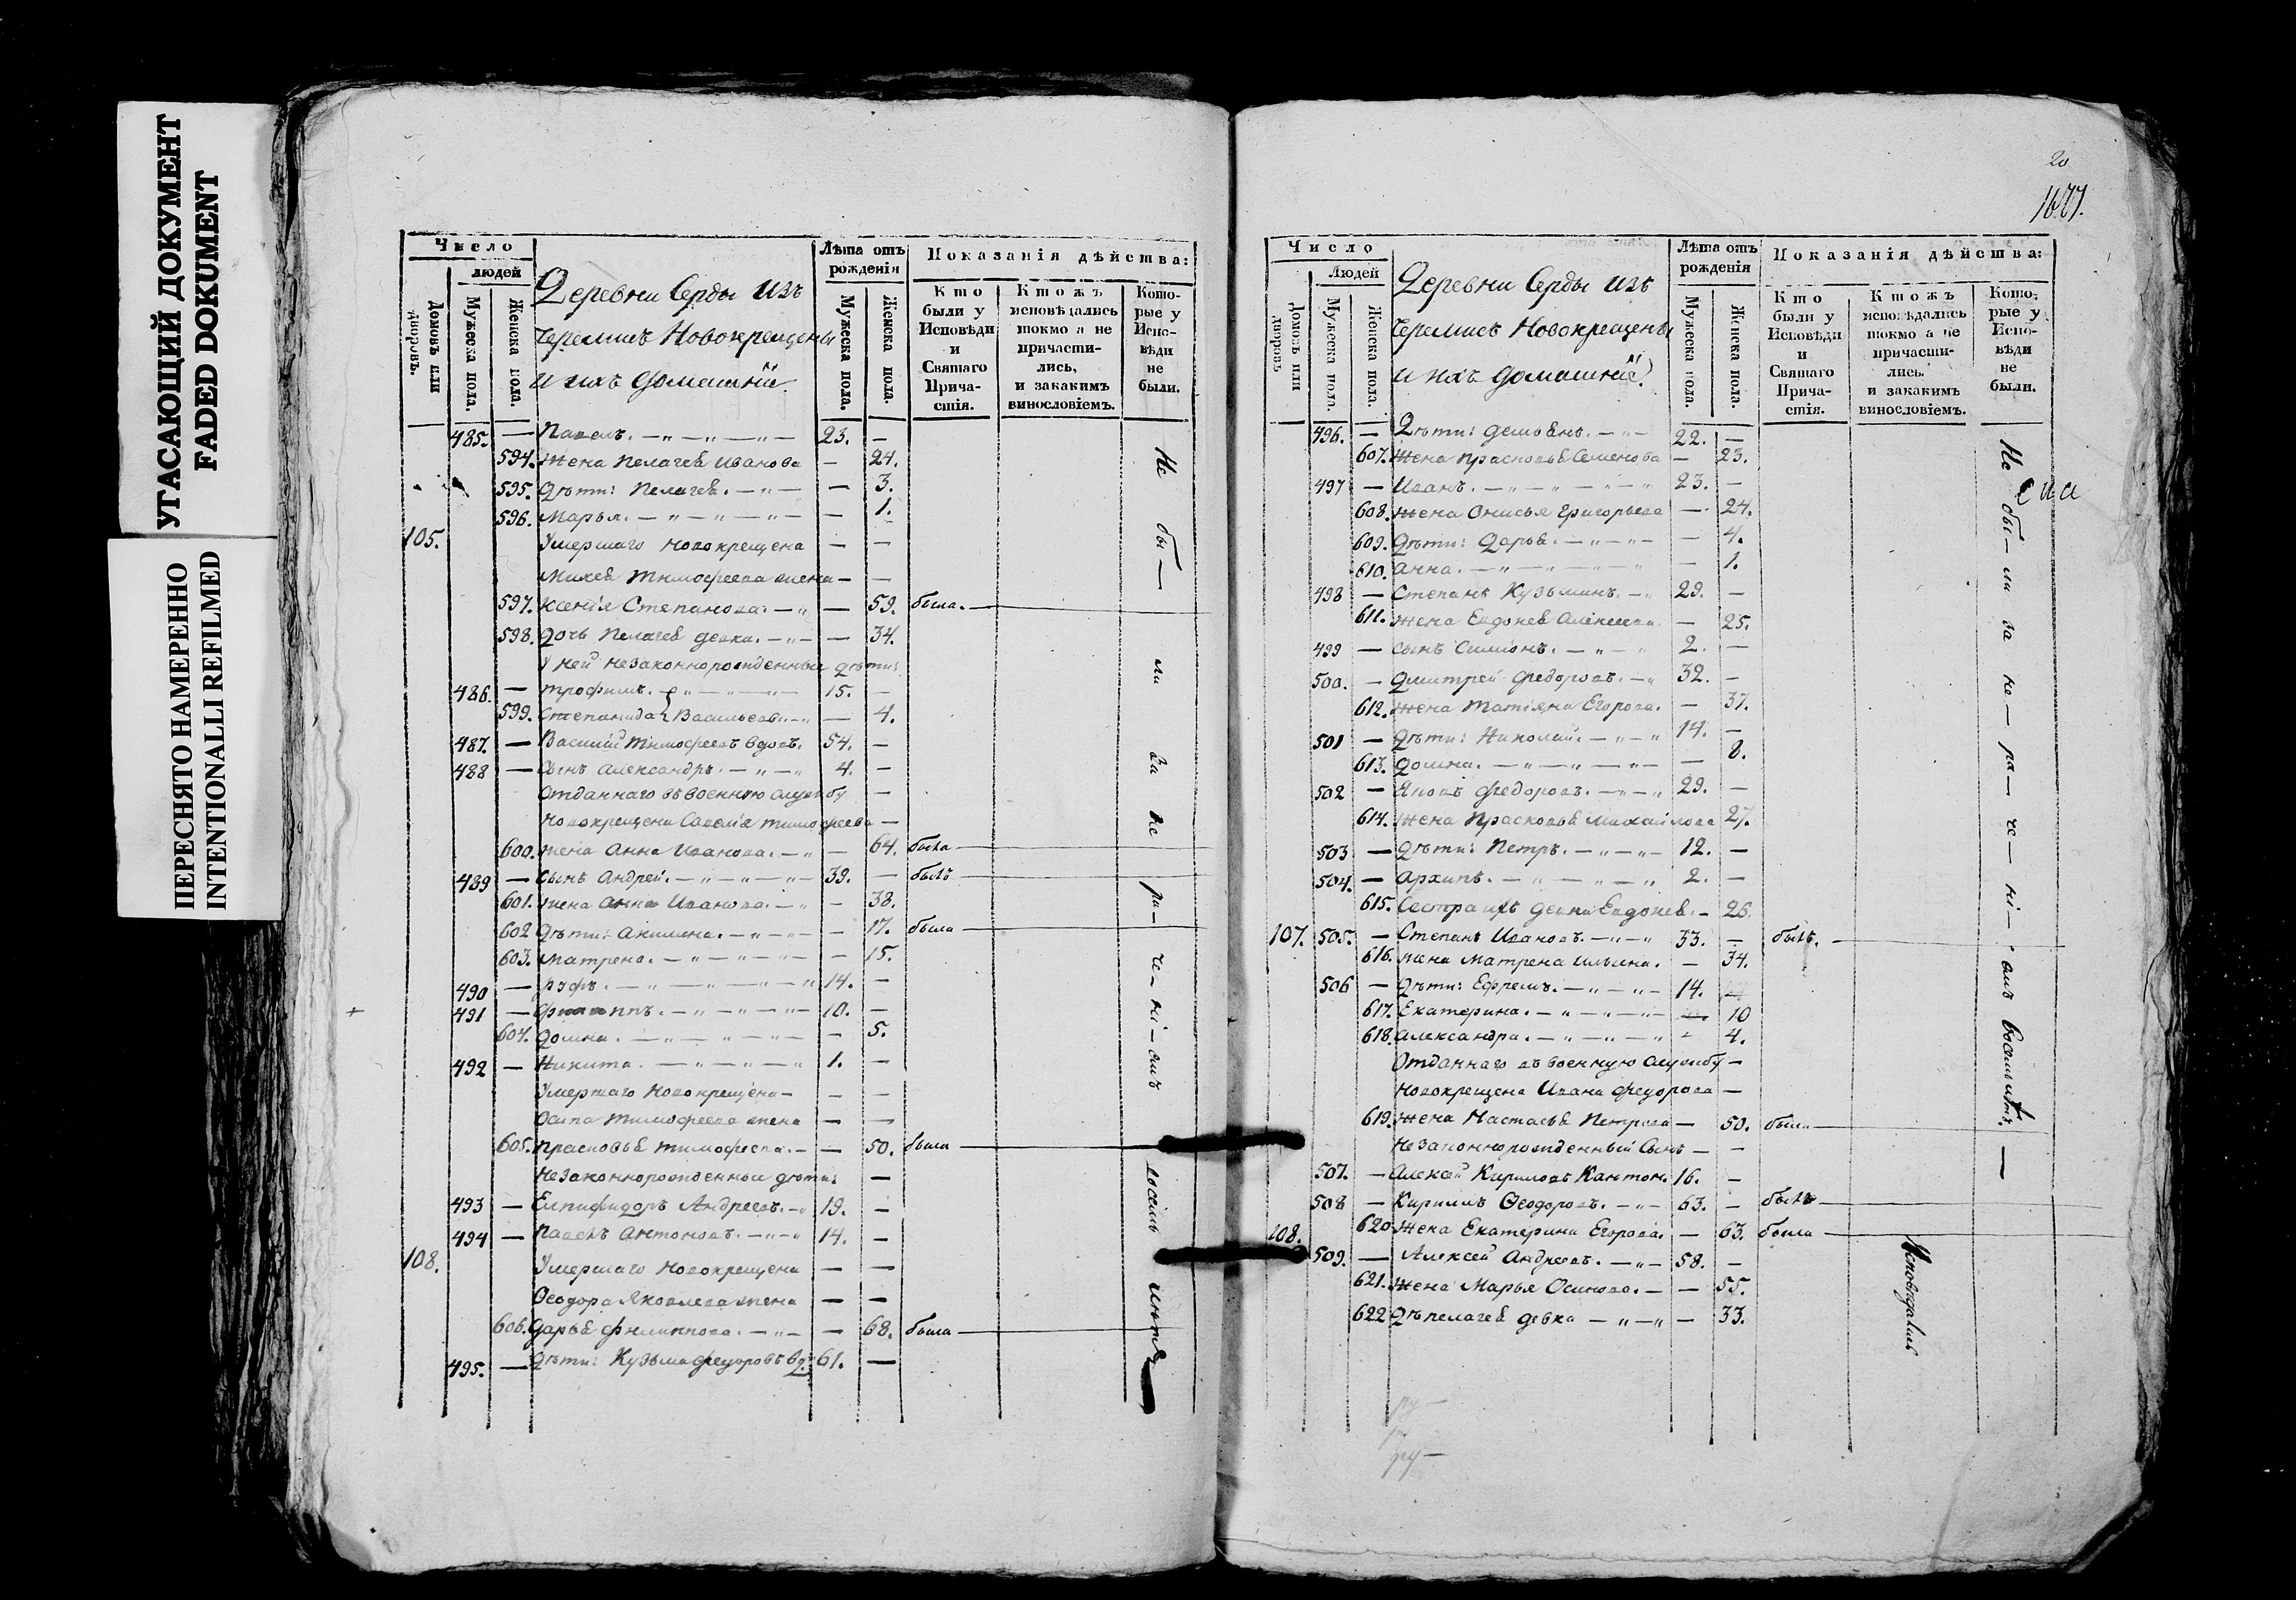 УГАСАЮЩИЙ ДОКУМЕНТ
FADED DOKUMENT
ПЕРЕСНЯТО НАМЕРЕННО
INTENTIONALLI REFILMED
Число
людей
Домовъ или дворовъ.
Мужеска пола.
Женска пола.
Деревни Серды изъ
Черемисъ Новокрещены
и ихъ домашніи
Лѣта отъ рожденія
Мужеска пола.
Женска пола.
Показанія дѣйства:
Кто были у Исповѣди и Святаго Причастія.
Ктожъ исповѣдались токмо а не причастились, и закакимъ винословіемъ.
Которые у Исповѣди не были.
485. — Павелъ. — „ — „ — „ — 23. —
594. Жена Пелагея Иванова — 24.
595. Дѣти: Пелагея. — „ — — 3.
596. Марья. — „ — „ — „ — — 1.
105. Умершаго новокрещена — —
Михея Тимофеева жена — —
597. Ксенія Степанова. — „ — 59. была.
598. Дочь Пелагея девка. — „ — — 34.
У ней незаконнорожденныя дѣти:
486. — Трофимъ. — „ — „ — 15. —
599. Степанида Васильевы — „ — 4.
487. — Василій Тимофеевъ вдовъ. 54. —
488 — Сынъ Александръ. — „ — „ 4. —
Отданнаго въ военную службу —
новокрещена Савелія Тимофеева —
600. жена Анна Иванова. — „ — 64. была
489 — Сынъ Андрей. — „ — „ — „ — 39. — былъ
601. жена Анна Иванова. — „ — 38.
602 Дѣти: Акилина. — „ — „ — — 17. была
603. Матрена. — „ — „ — „ — — 15.
490 — „ — „ — „ — „ 14. —
491 — Филиппъ. — „ — „ — „ — 10. —
604. Домна. — „ — „ — „ — — 5.
492 — Никита. — „ — „ — „ — 1. —
Умершаго Новокрещена — — —
Осипа Тимофеева жена — —
605. Прасковья Тимофеева. — — 50. была
незаконнорожденныя дѣти: —
493 — Елпифидоръ Андреевъ. — „ 19. —
494 — Павелъ Антоновъ. — „ — „ 14. —
108. Умершаго Новокрещена — —
Ѳеодора Яковлева жена — —
606. Дарья Филиппова. — „ — — 68. была
495. — Дѣти: Кузьма Федоровъ вд: 61. —
Не бы — ли за не ра — че — ні — емъ
20
Число
Людей
Домовъ или дворовъ
Мужеска пола.
Женска пола.
Деревни Серды изъ
Черемисъ Новокрещены
и ихъ домашніи
Лѣта отъ рожденія
Мужеска пола.
Женска пола.
Показанія дѣйства:
Кто были у Исповѣди и Святаго Причастія.
Ктожъ исповѣдались токмо а не причастились. и закакимъ винословіемъ.
Которые у Исповѣди не были.
496. — Дѣти: Демьянъ. — „ — 22. —
607. Жена Прасковья Семенова — 23.
497 — Иванъ. — „ — „ — „ — „ 23. —
608. жена Онисья Григорьева — 24.
609. Дѣти: Дарья. — „ — „ — — 4.
610. Анна. — „ — „ — „ — „ — 1.
498 — Степанъ Кузьминъ. — „ 29. —
611. Жена Евдокея Алексеева — 25.
499 — сынъ Симіонъ. — „ — „ 2. —
500. — Дмитрей Федоровъ. — „ 32. —
612. Жена Татіяна Егорова. — 37.
501 — Дѣти: Николай. — „ — „ 14. —
613. Домна. — „ — „ — „ — — 8.
502 — Яковъ Федоровъ. — „ — „ 29. —
614. Жена Прасковья Михайлова 27.
503 — Дѣти: Петръ. — „ — „ — 12. —
504. — Архипъ. — „ — „ — „ 2. —
615. Сестра ихъ девка Евдокея. — 26.
107. 505. — Степанъ Ивановъ. — „ — „ 33. — былъ.
616. жена Матрена Ильина. — 34.
506 — Дѣти: Ефремъ. — „ — „ — 14.
617. Екатерина. — „ — „ — „ — 10
618. Александра. — „ — „ — „ — 4.
Отданнаго въ военную службу —
новокрещена Ивана Федорова —
619. Жена Настасья Петрова — 50. была
Незаконнорожденный сынъ — —
507. — Алексей Кириловъ Кантон. 16. —
508 — Кириллъ Ѳеодоровъ. — „ — 63. — былъ
108. 620. Жена Екатерина Егорова. — 63. была
509. — Алексей Андреевъ. — „ — 58. —
621. Жена Марья Осипова. — — 55.
622 Дѣ пелагея девка — „ — „ — 33.
Не бы — ли за не — ра — че — ні — емъ
Исповедались